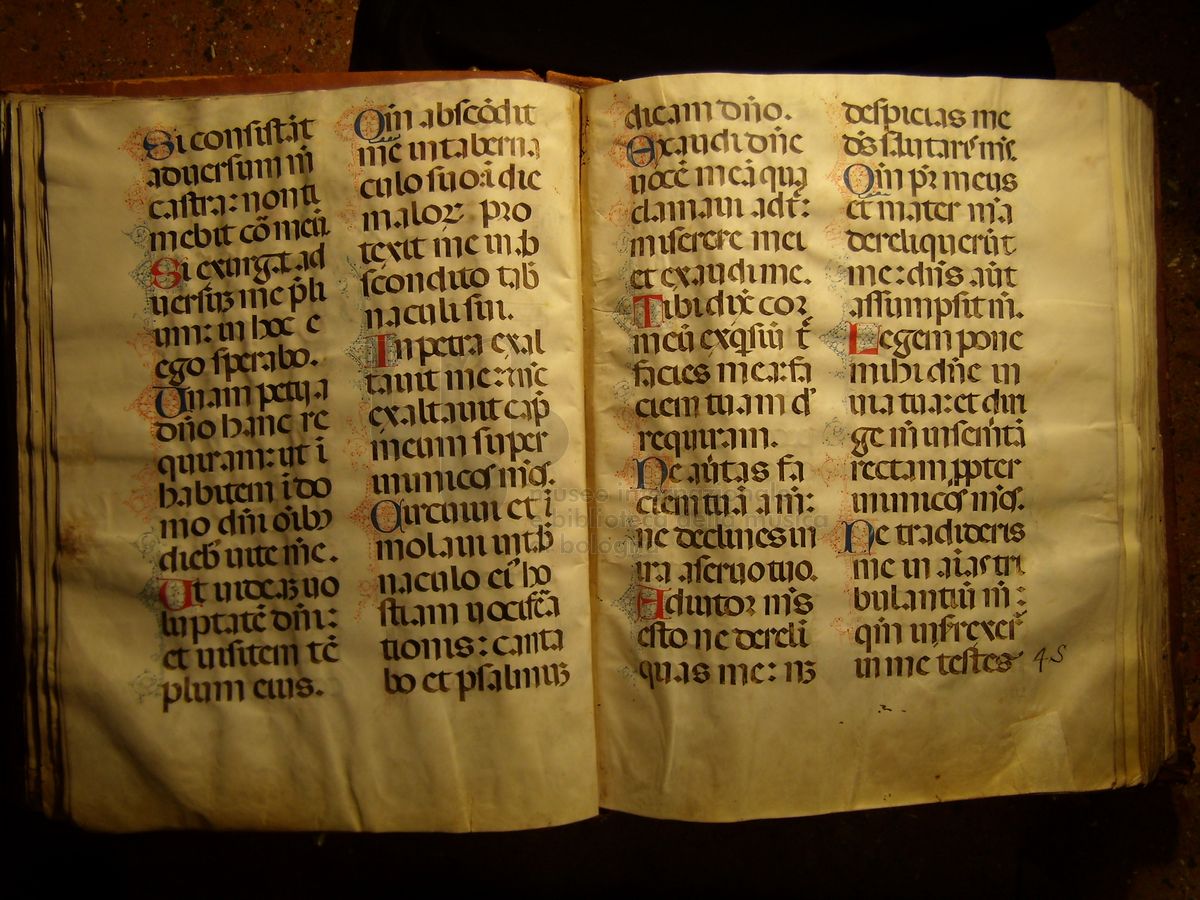 Si consistāt
aduersum m̄
castra: non ti
mebit cō meū.
Si exurgat ad
uersuꝫ me p̄li
um: in hoc e
ego sperabo.
Unam petij a
dn̄o hanc re
quiram: ut ī
habitem ī do
mo dn̄i oīb
dieb uite me̅.
Ut uideaꝫ uo
luptatē dn̄i:
et uisitem tē
plum eius.
Qm̄ abscōdit
me̅ in taberna
culo suo: ī die
maloꝝ pro
texit me in ab
scondito tab̄
naculi sui.
In petra exal
tauit me: nūc
exaltauit cap̄
meum super
inimicos mōs.
Circuiui et ī
molaui in tab̄
naculo ei᷒ ho
stiam uocifēa
tionis: canta
bo et psalmuꝫ
dicam dn̄o.
Exaudi dn̄e
uocē meā qua
clamaui ad te̅:
miserere mei
et exaudi me.
Tibi dix̄ cor
meū exqsiuī t̄
facies mea: fa
ciem tuam d̄
requiram.
Ne au̅tas fa
ciem tuā a m̄:
ne declines in
ira a seruo tuo.
Adiutor me̅s
esto ne dereli
quas me: nꝫ
despicias me
ds̄ salutar̄ me̅.
Qm̄ pr̄ meus
et mater m̄a
dereliquerūt
me: dn̄s aūt
assumpsit m̄.
Legem pone
mihi dn̄e in
uia tua: et diri
ge m̄ in semitā
rectam ꝓpter
inimicos mōs.
Ne tradideris
me in aīas tri
bulantiū m̄:
qm̄ insrexer̄
in me testes
45
museo internazionale
e biblioteca della musica
bologna